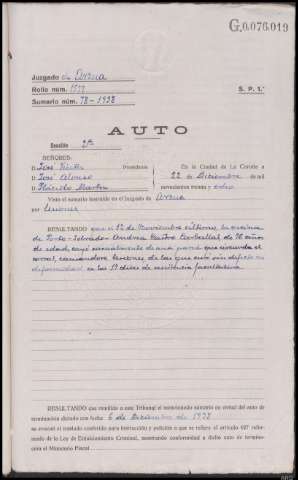 G.0.076.019
Juzgado de Arzua
Rollo núm. 1777
Sumario núm. 78-1938
S. P. 1.ª
AUTO
Sección 2ª
SEÑORES:
D. José
Presidente
En la Ciudad de La Coruña a
D. José Alonso
22 Diciembre de mil
D. Plácido Martin
novecientos treinta y ocho
Visto el sumario instruido en el Juzgado de Arzua
por Lesiones
RESULTANDO que el 12 de Noviembre último, la vecina
de Andrea Castro Carballal, de 76 años
de edad, cayó casualmente de una pared que circunda el
corral, causandose lesiones de las que curó sin defecto ni
deformidad en los 19 dias de asistencia facultativa.
RESULTANDO que remitido a este Tribunal el mencionado sumario en virtud del auto de
terminación dictado con fecha 6 de Diciembre de 1938
se evacuó el traslado conferido para instrucción y petición a que se refiere el artículo 627 refor-
mado de la Ley de Enjuiciamiento Criminal, mostrando conformidad a dicho auto de termina-
ción el Ministerio Fiscal